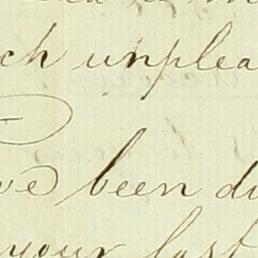 ch unplea
ve been du
your last